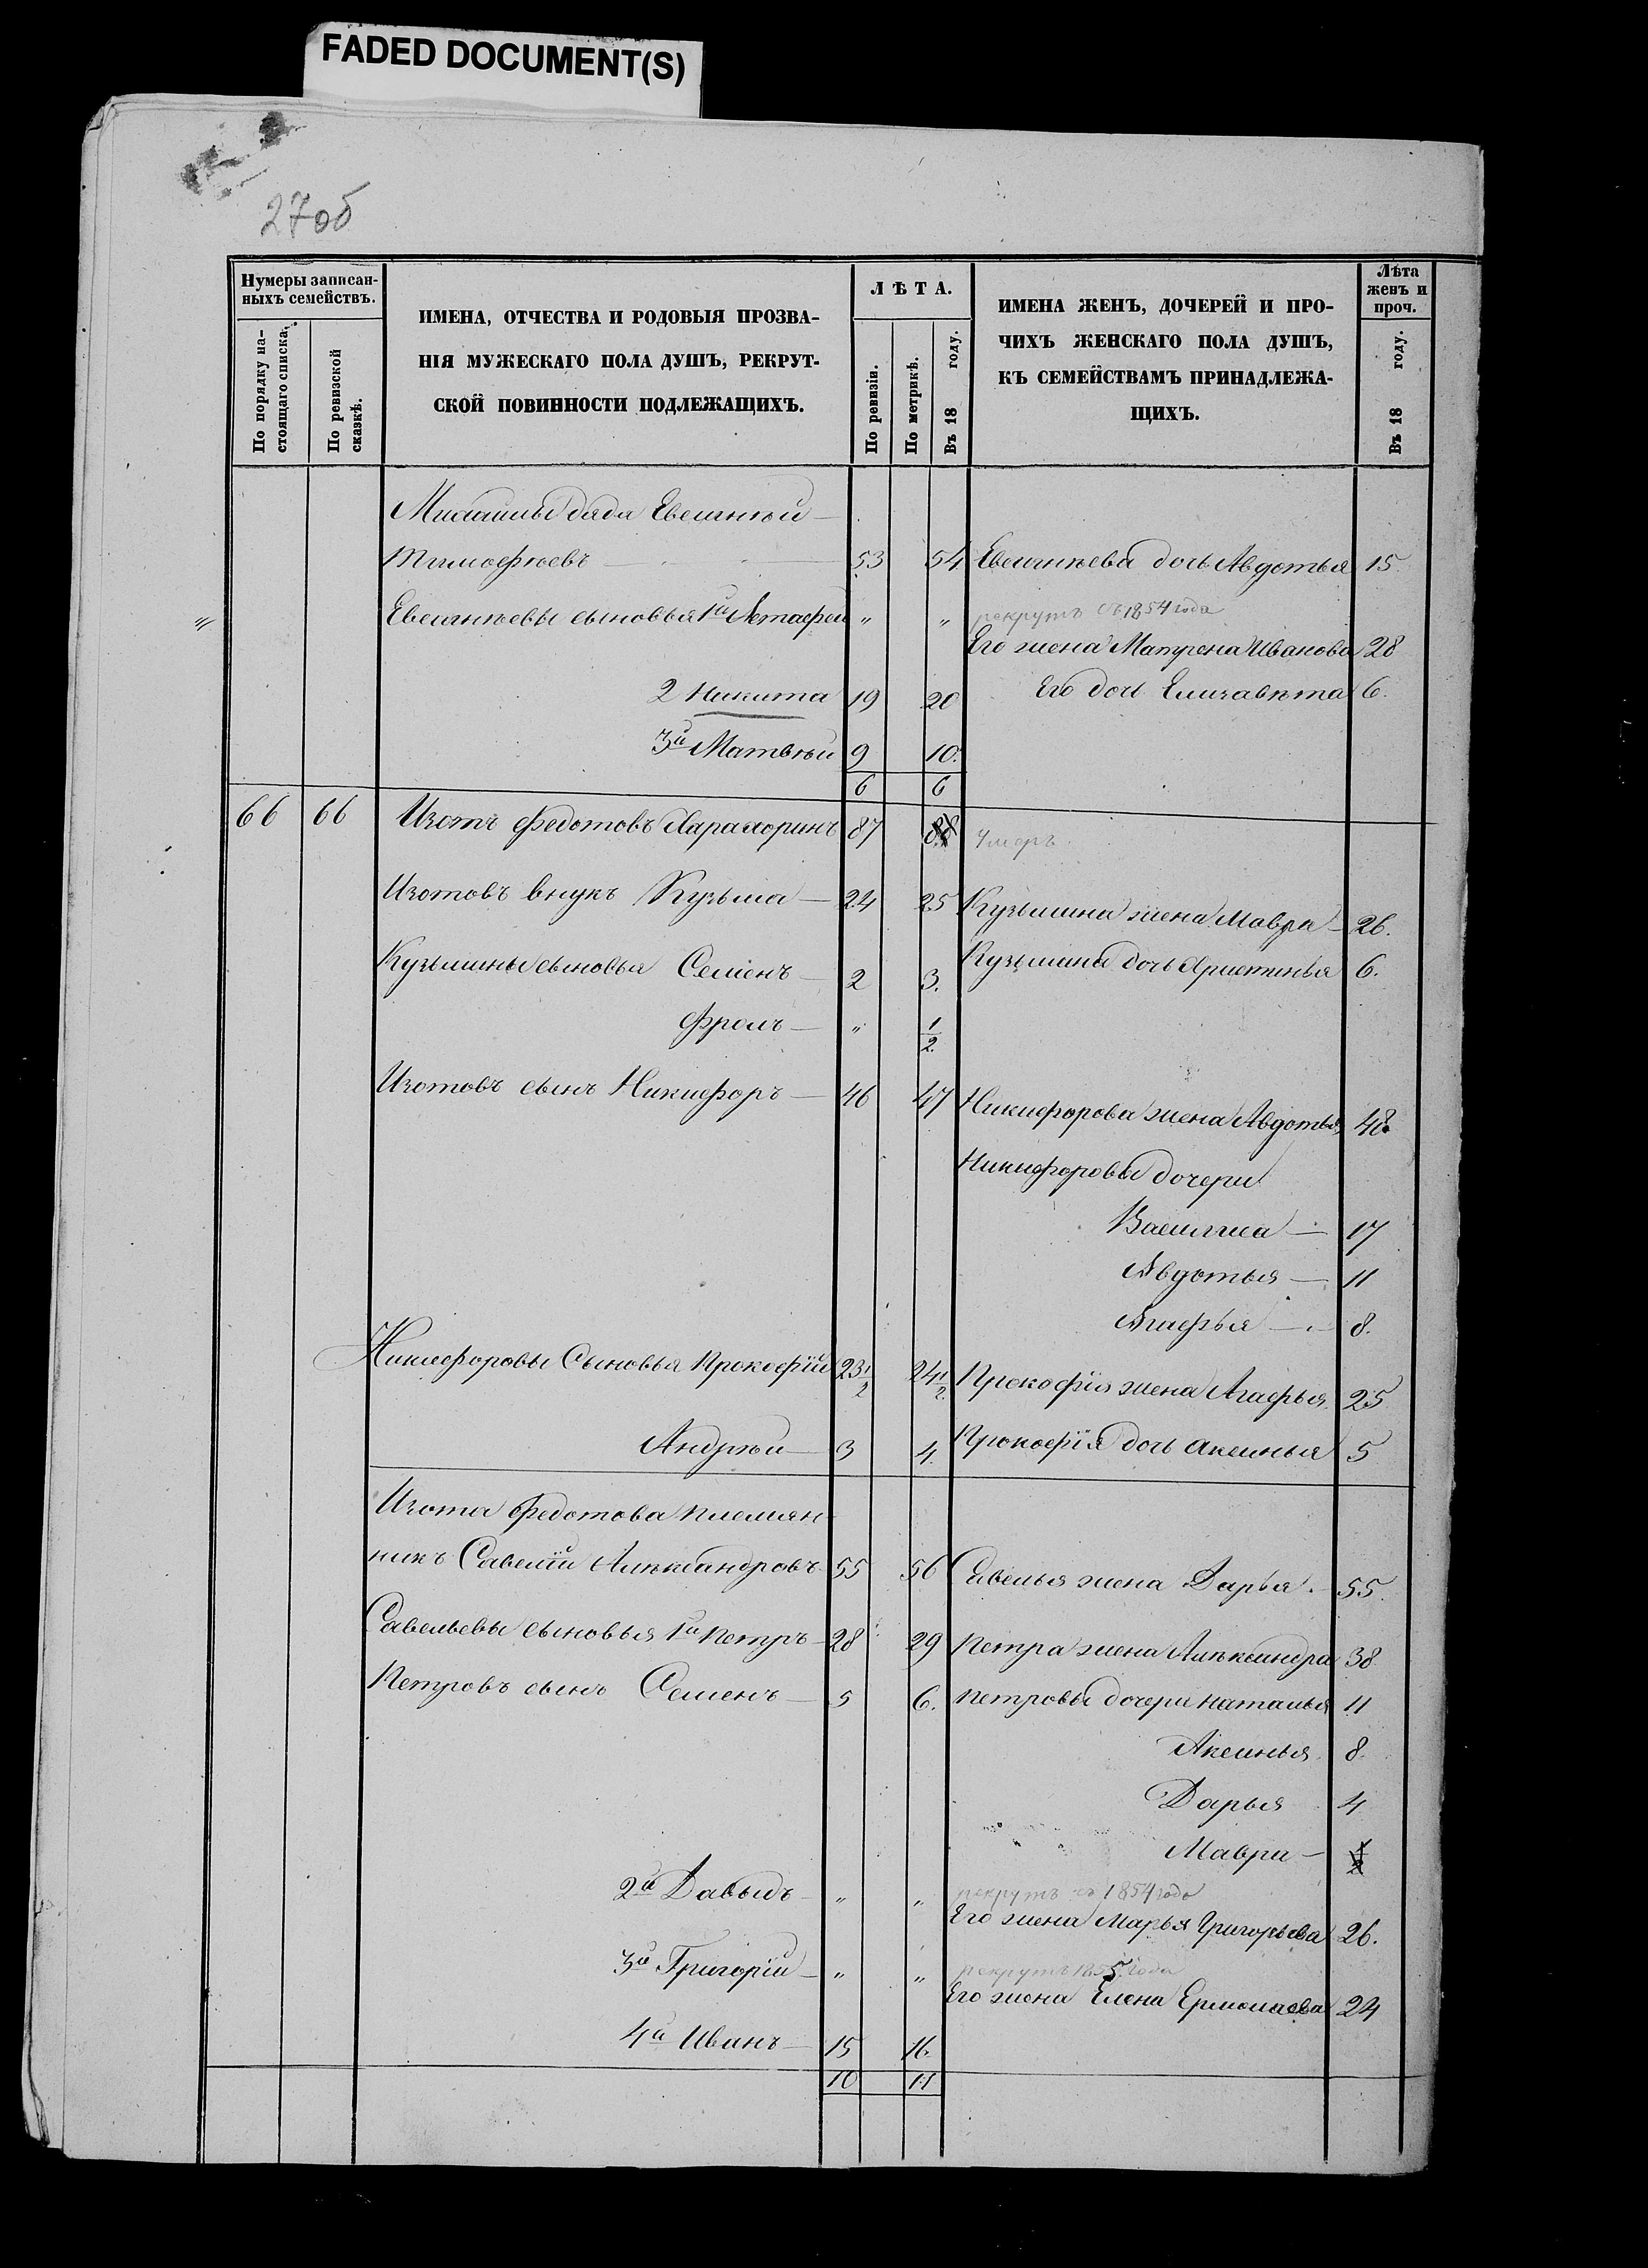 FADED DOCUMENT(S)
27об
Нумеры записан-
ныхъ семействъ.
По порядку на-
стоящаго списка.
По ревизской
сказкѣ.
ИМЕНА, ОТЧЕСТВА И РОДОВЫЯ ПРОЗВА-
НІЯ МУЖЕСКАГО ПОЛА ДУШЪ, РЕКРУТ-
СКОЙ ПОВИННОСТИ ПОДЛЕЖАЩИХЪ.
ЛѢТА.
По ревизіи.
По метрикѣ.
Въ 18 году.
ИМЕНА ЖЕНЪ, ДОЧЕРЕЙ И ПРО-
ЧИХЪ ЖЕНСКАГО ПОЛА ДУШЪ,
КЪ СЕМЕЙСТВАМЪ ПРИНАДЛЕЖА-
ЩИХЪ.
Лѣта
женъ и
проч.
Въ 18 году.
дядя Евсигнѣй
Тимофѣевъ 53 54 Евсигнѣева дочь Авдотья 15
Евсигнѣевы сыновья 1й " " рекрутъ съ 1854 года
Его жена Матрена Иванова 28
2 Никита 19 20 Его дочь Елизавѣта 6.
3й Матвѣй 9 10.
6 6
66 66 Изотъ Федотовъ 87 88 Умеръ
Изотовъ внукъ Кузьма 24 25 Кузьмина жена Мавра 26.
Кузьмины сыновья Семенъ 2 3. Кузьмина дочь Христинья 6.
Фролъ " 1/2
Изотовъ сынъ Никифоръ 46 47 Никифорова жена Авдотья 48
Никифоровы дочери
Василиса 17
Авдотья 11
8.
Никифоровы Сыновья Прокофій 23 1/2 24 1/2 Прокофія жена Агафья 25
Андрѣй 3 4. Прокофія дочь Аксинья 5
Изота Федотова племян-
никъ Савелій Алѣксандровъ 55 56 Савелья жена Дарья 55.
Савельевы сыновья 1й Петръ 28 29 Петра жена Алѣксандра 38
Петровъ сынъ Семенъ 5 6. Петровы дочери Наталья 11
Аксинья 8.
Дарья 4
Мавра 1/2
2й Давыдъ " " рекрутъ съ 1854 года
Его жена Марья Григорьева 26.
3й Григорій " " рекрутъ 1855 года
Его жена Елена Ермолаева 24
4й Иванъ 15 16.
10 11